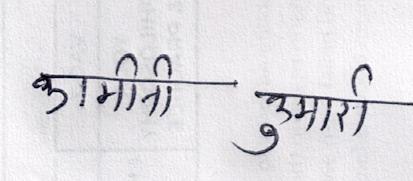 कामीनी कुमारी